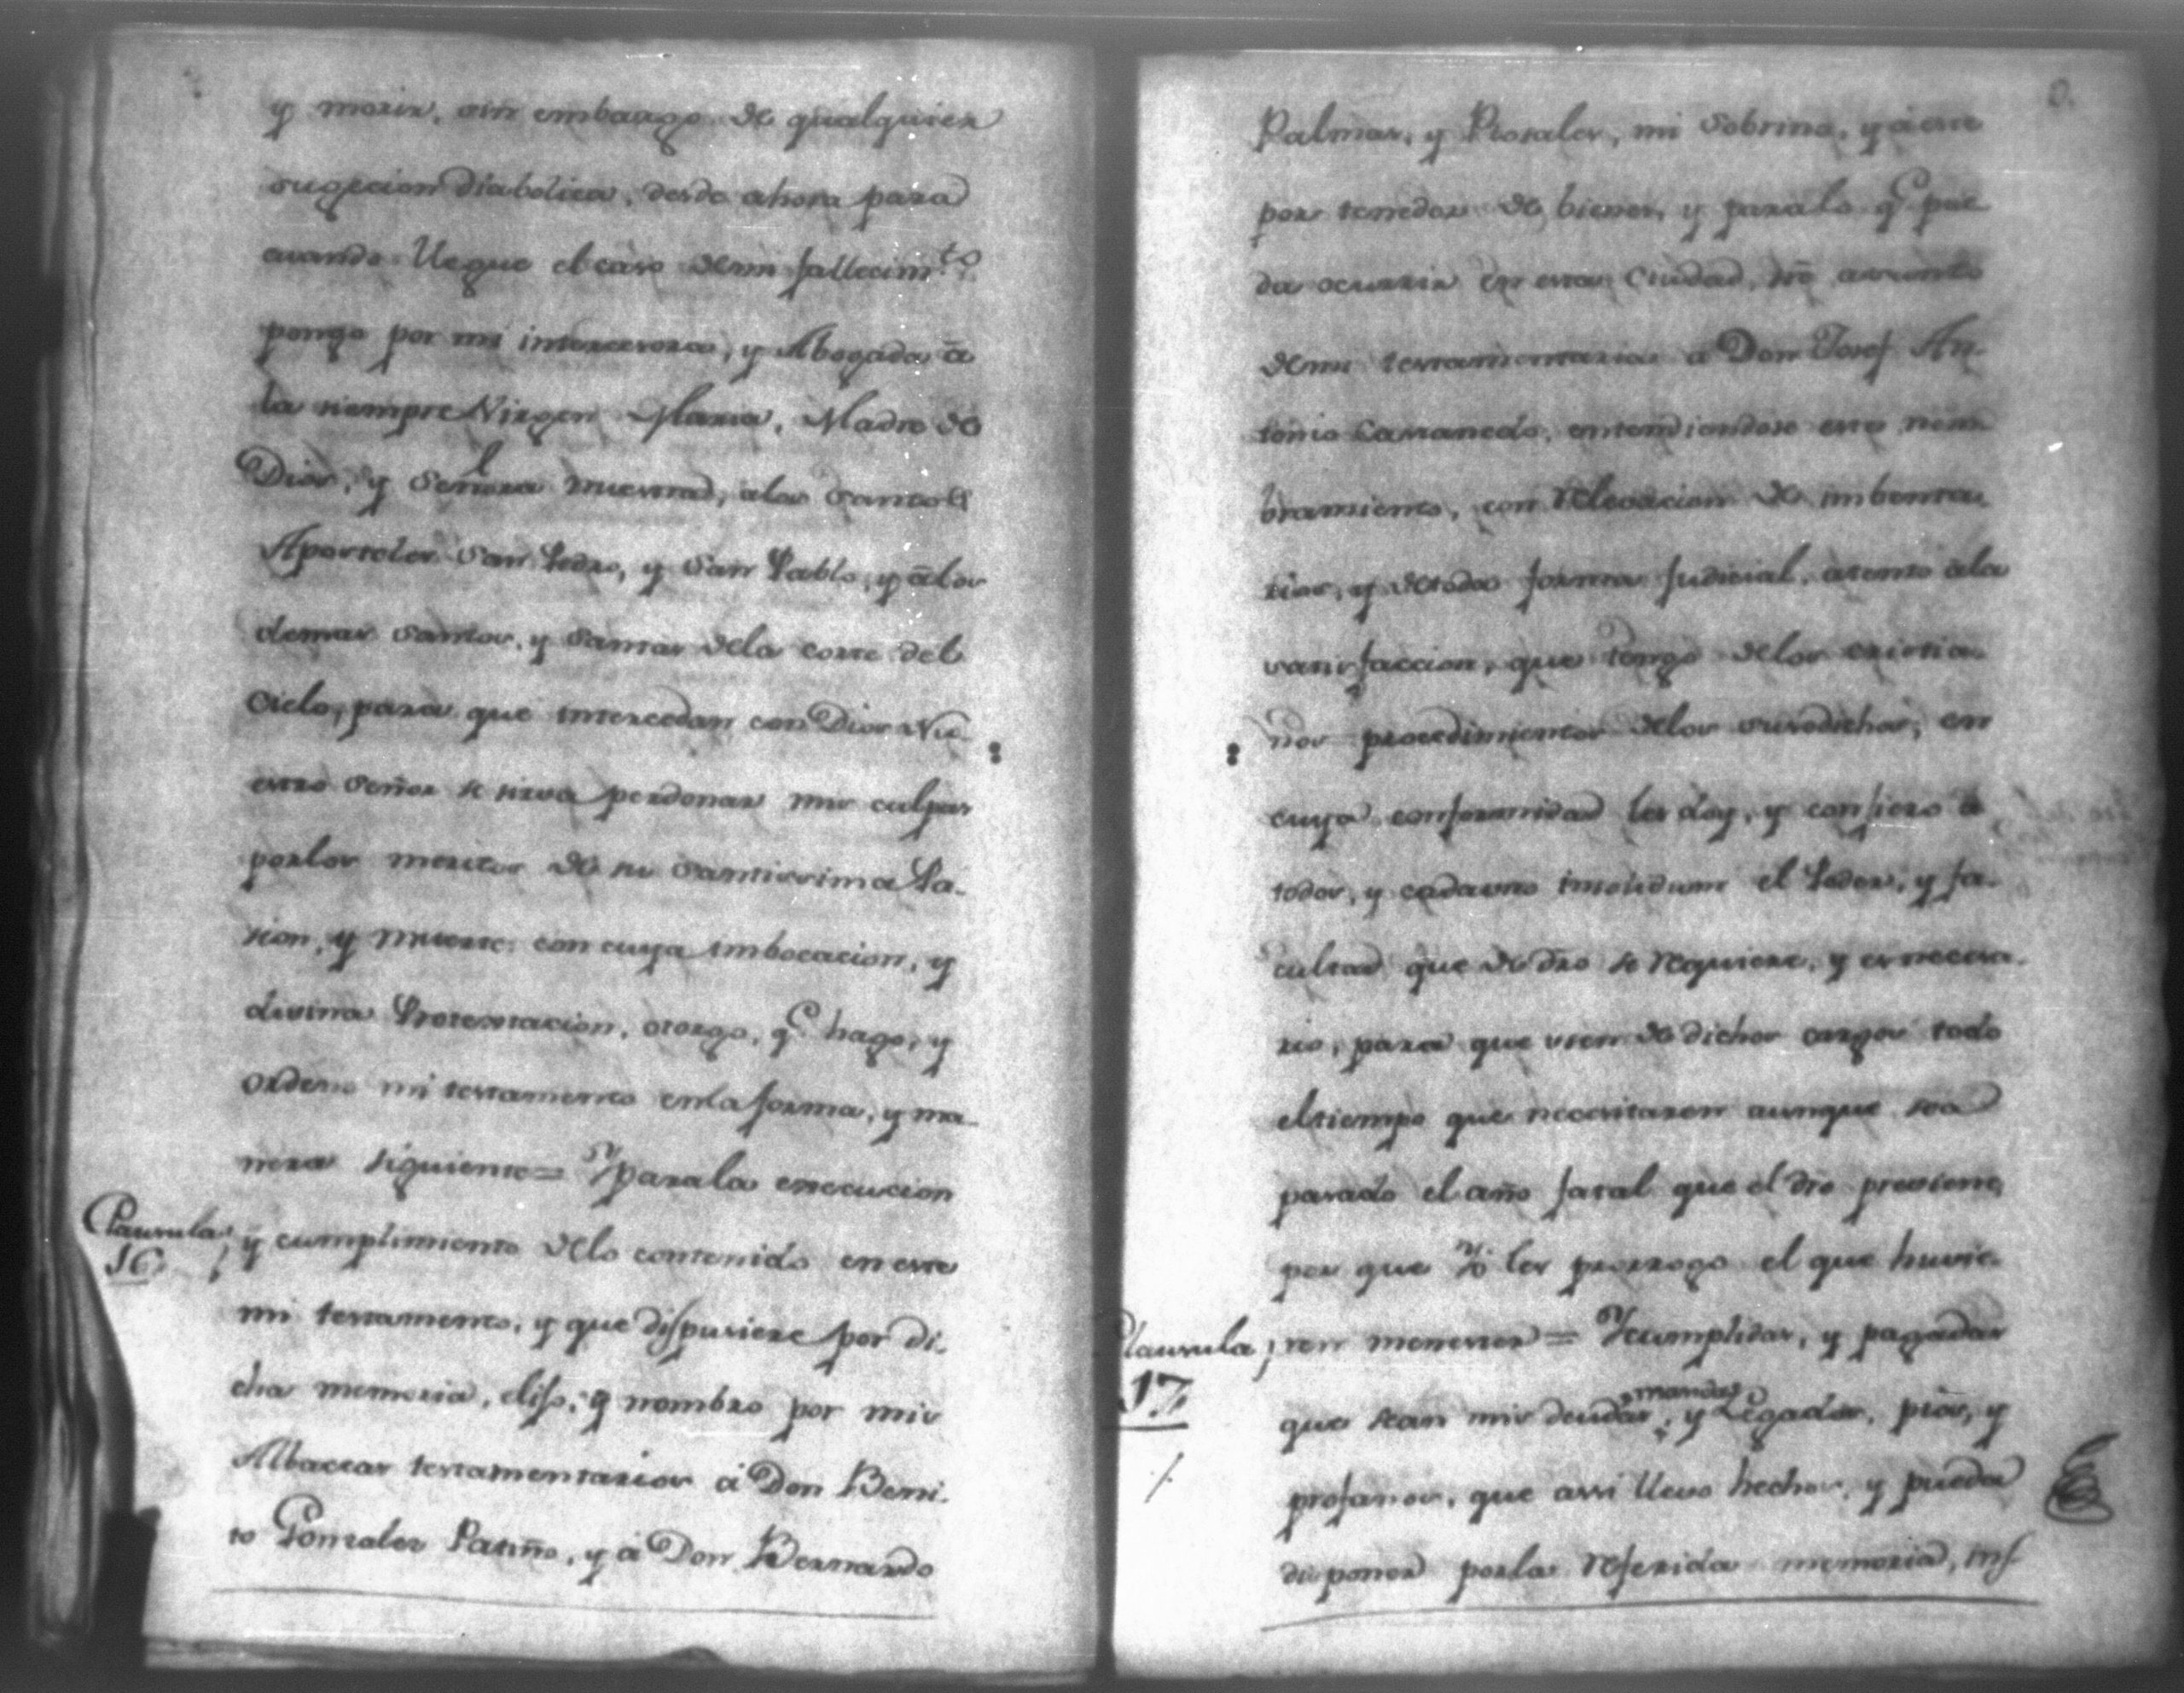 y morir, sin embargo de qualquier
sugecion diabolica, desde ahora para
cuando llegue el caso demi fallecim.to
pongo por mi intercesora, y Abogada â
la siempre Virgen Maria, Madre de
Dios, y Señora nuestra, alos Santos
Apostoles San Pedro, y San Pablo, y âlos
demas Santos, y Santas dela corte del
Cielo, para que intercedan con Dios Nu-
estro Señor se sirva perdonar mis culpas
porlos meritos de su Santissima Pa-
sion, y muerte: con cuya imbocacion, y
divina Protestacion, otorgo, q.e hago, y
ordeno mi testamento enla forma, y ma-
nera siguiente = Y parala execucion
Clausula 16 y cumplimiento delo contenido en este
mi testamento, y que dispusiere por di-
cha memoria, elijo, y nombro por mis
Albaceas testamentarios á Don Beni-
to Gonzales Patiño, y á Don Bernardo
Palmar, y Rosales, mi Sobrino, y á este
por tenedor de bienes, y paralo q.e pue-
da ocurrir en esta Ciudad, sre asunto
demi testamentaria á Don Josef An-
tonio Castanedo, entendiendose este nom-
bramiento, con relevacion de imbenta-
rios, y detoda forma Judicial, atento âla
satisfaccion, que tengo delos cristia-
nos procedimientos delos susodichos, en
cuya conformidad les doy, y confiero â
todos, y cadauno insolidum el Poder, y fa-
cultad que de dro se requiere, y es necesa-
rio, para que usen de dichos cargos todo
eltiempo que necesitaren aunque sea
pasado el año fatal que el dro previene,
por que Yo les prorrogo el que huvie-
Clausula 17 ren menester = Y cumplidas, y pagadas
que sean mis deudas, mandas, y Legados, pios, y
profanos, que assi llevo hechos, y pueda
disponer porla referida memoria, ins-